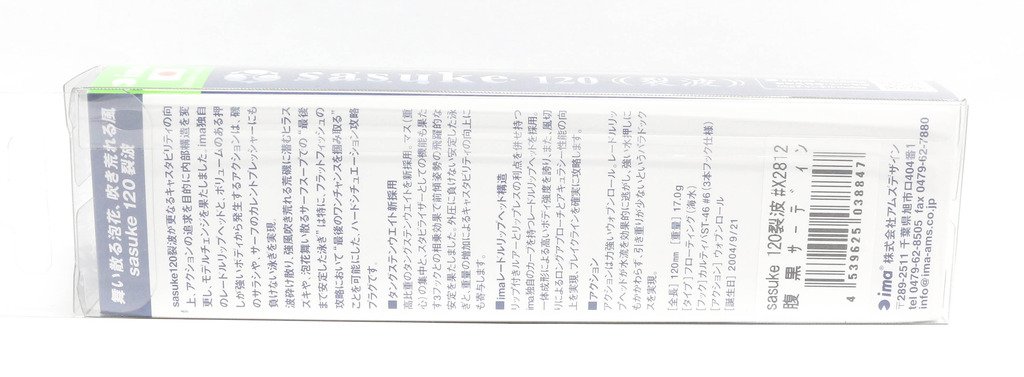 sasuke 120 裂波
舞い散る泡花、吹き荒れる風
sasuke 120 裂波
sasuke120裂波が更なるキャスタビリティの向
上、アクションの追求を目的に内部構造を変
更し、モデルチェンジを果たしました。ima独自
のレードルリップヘッドと、ボリュームのある押
しが強いボディから発生するアクションは、磯
のサラシや、サーフのカレントプレッシャーにも
負けない泳ぎを実現。
波砕け散り、強風吹き荒れる荒磯に潜むヒラス
スキや、泡花舞い散るサーフスープでの“最後
まで安定した泳ぎ”は特に、フラットフィッシュの
攻略において“最後のワンチャンスを掴み取る”
ことを可能にした、ハードシチュエーション攻略
プラグです。
■タングステンウエイト新採用
高比重のタングステンウェイトを新採用。マス(重
心)の集中と、スタビライザーとしての機能も果た
す3フックとの相乗効果で前傾姿勢の飛躍的な
安定を果たしました。外圧に負けない安定した泳
ぎと、重量の増加によるキャスタビリティの向上に
も寄与します。
■imaレードルリップヘッド構造
リップ付きルアーとリップレスの利点を併せ持つ
ima独自のカーブを持つレードルリップヘッドを採用。
一体成形による高いボディ強度を誇り、また、風切
りによるロングアプローチとアキュラシー性能の向
上を実現、ブレイクゲインを確実に攻略可能。
■アクション
アクションは力強いウォブンロール。レードルリッ
プヘッドが水流を効果的に逃がし、強い水押しに
もかかわらず、引き重りが少ないというパラドック
スを実現。
[全長] 120mm [重量] 17.0g
[タイプ] フローティング(海水)
[フック]カルティバST-46 #6(3本フック仕様)
[アクション] ウォブンロール
[誕生日] 2004/9/21
sasuke 120裂波 #X2812
腹黒サーディン
4 539625 038847
ima® 株式会社アムズデザイン
〒289-2511 千葉県旭市イ口404番1
tel 0479-62-8505 fax 0479-62-7880
info@ima-ams.co.jp